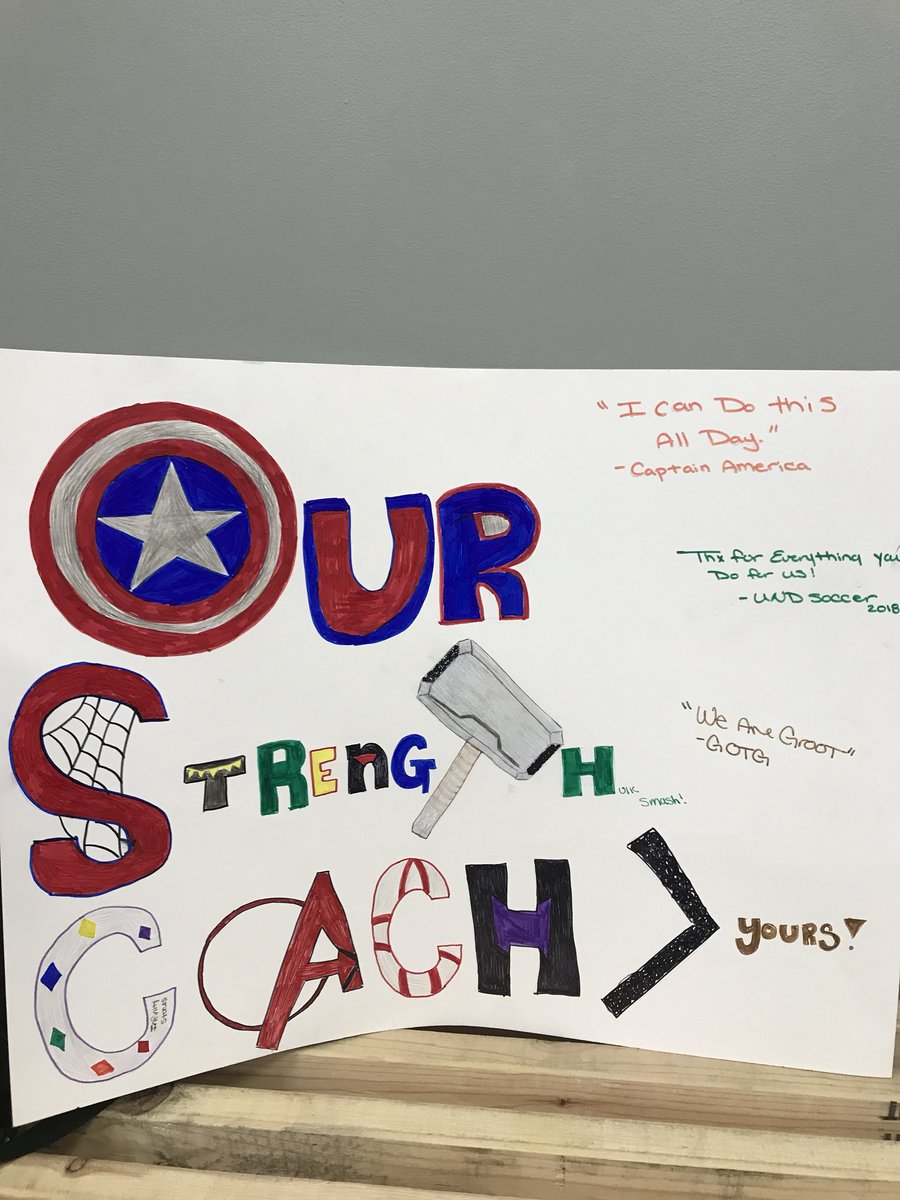 OUR
STRENGTH
ulk
Smash!
COACH > YOURS!
Infinity
Stones
"I can Do this
All Day."
- Captain America
Thx for Everything you
Do for us!
- UND Soccer
2018
"We Are Groot"
- GOTG